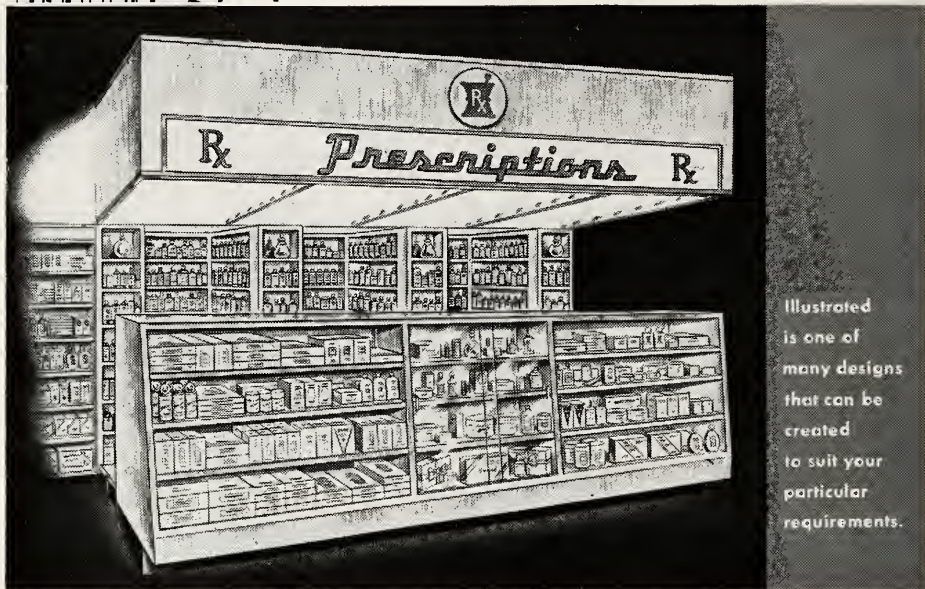 Rx
Rx Prescriptions Rx
Illustrated
is one of
many designs
that can be
created
to suit your
particular
requirements.